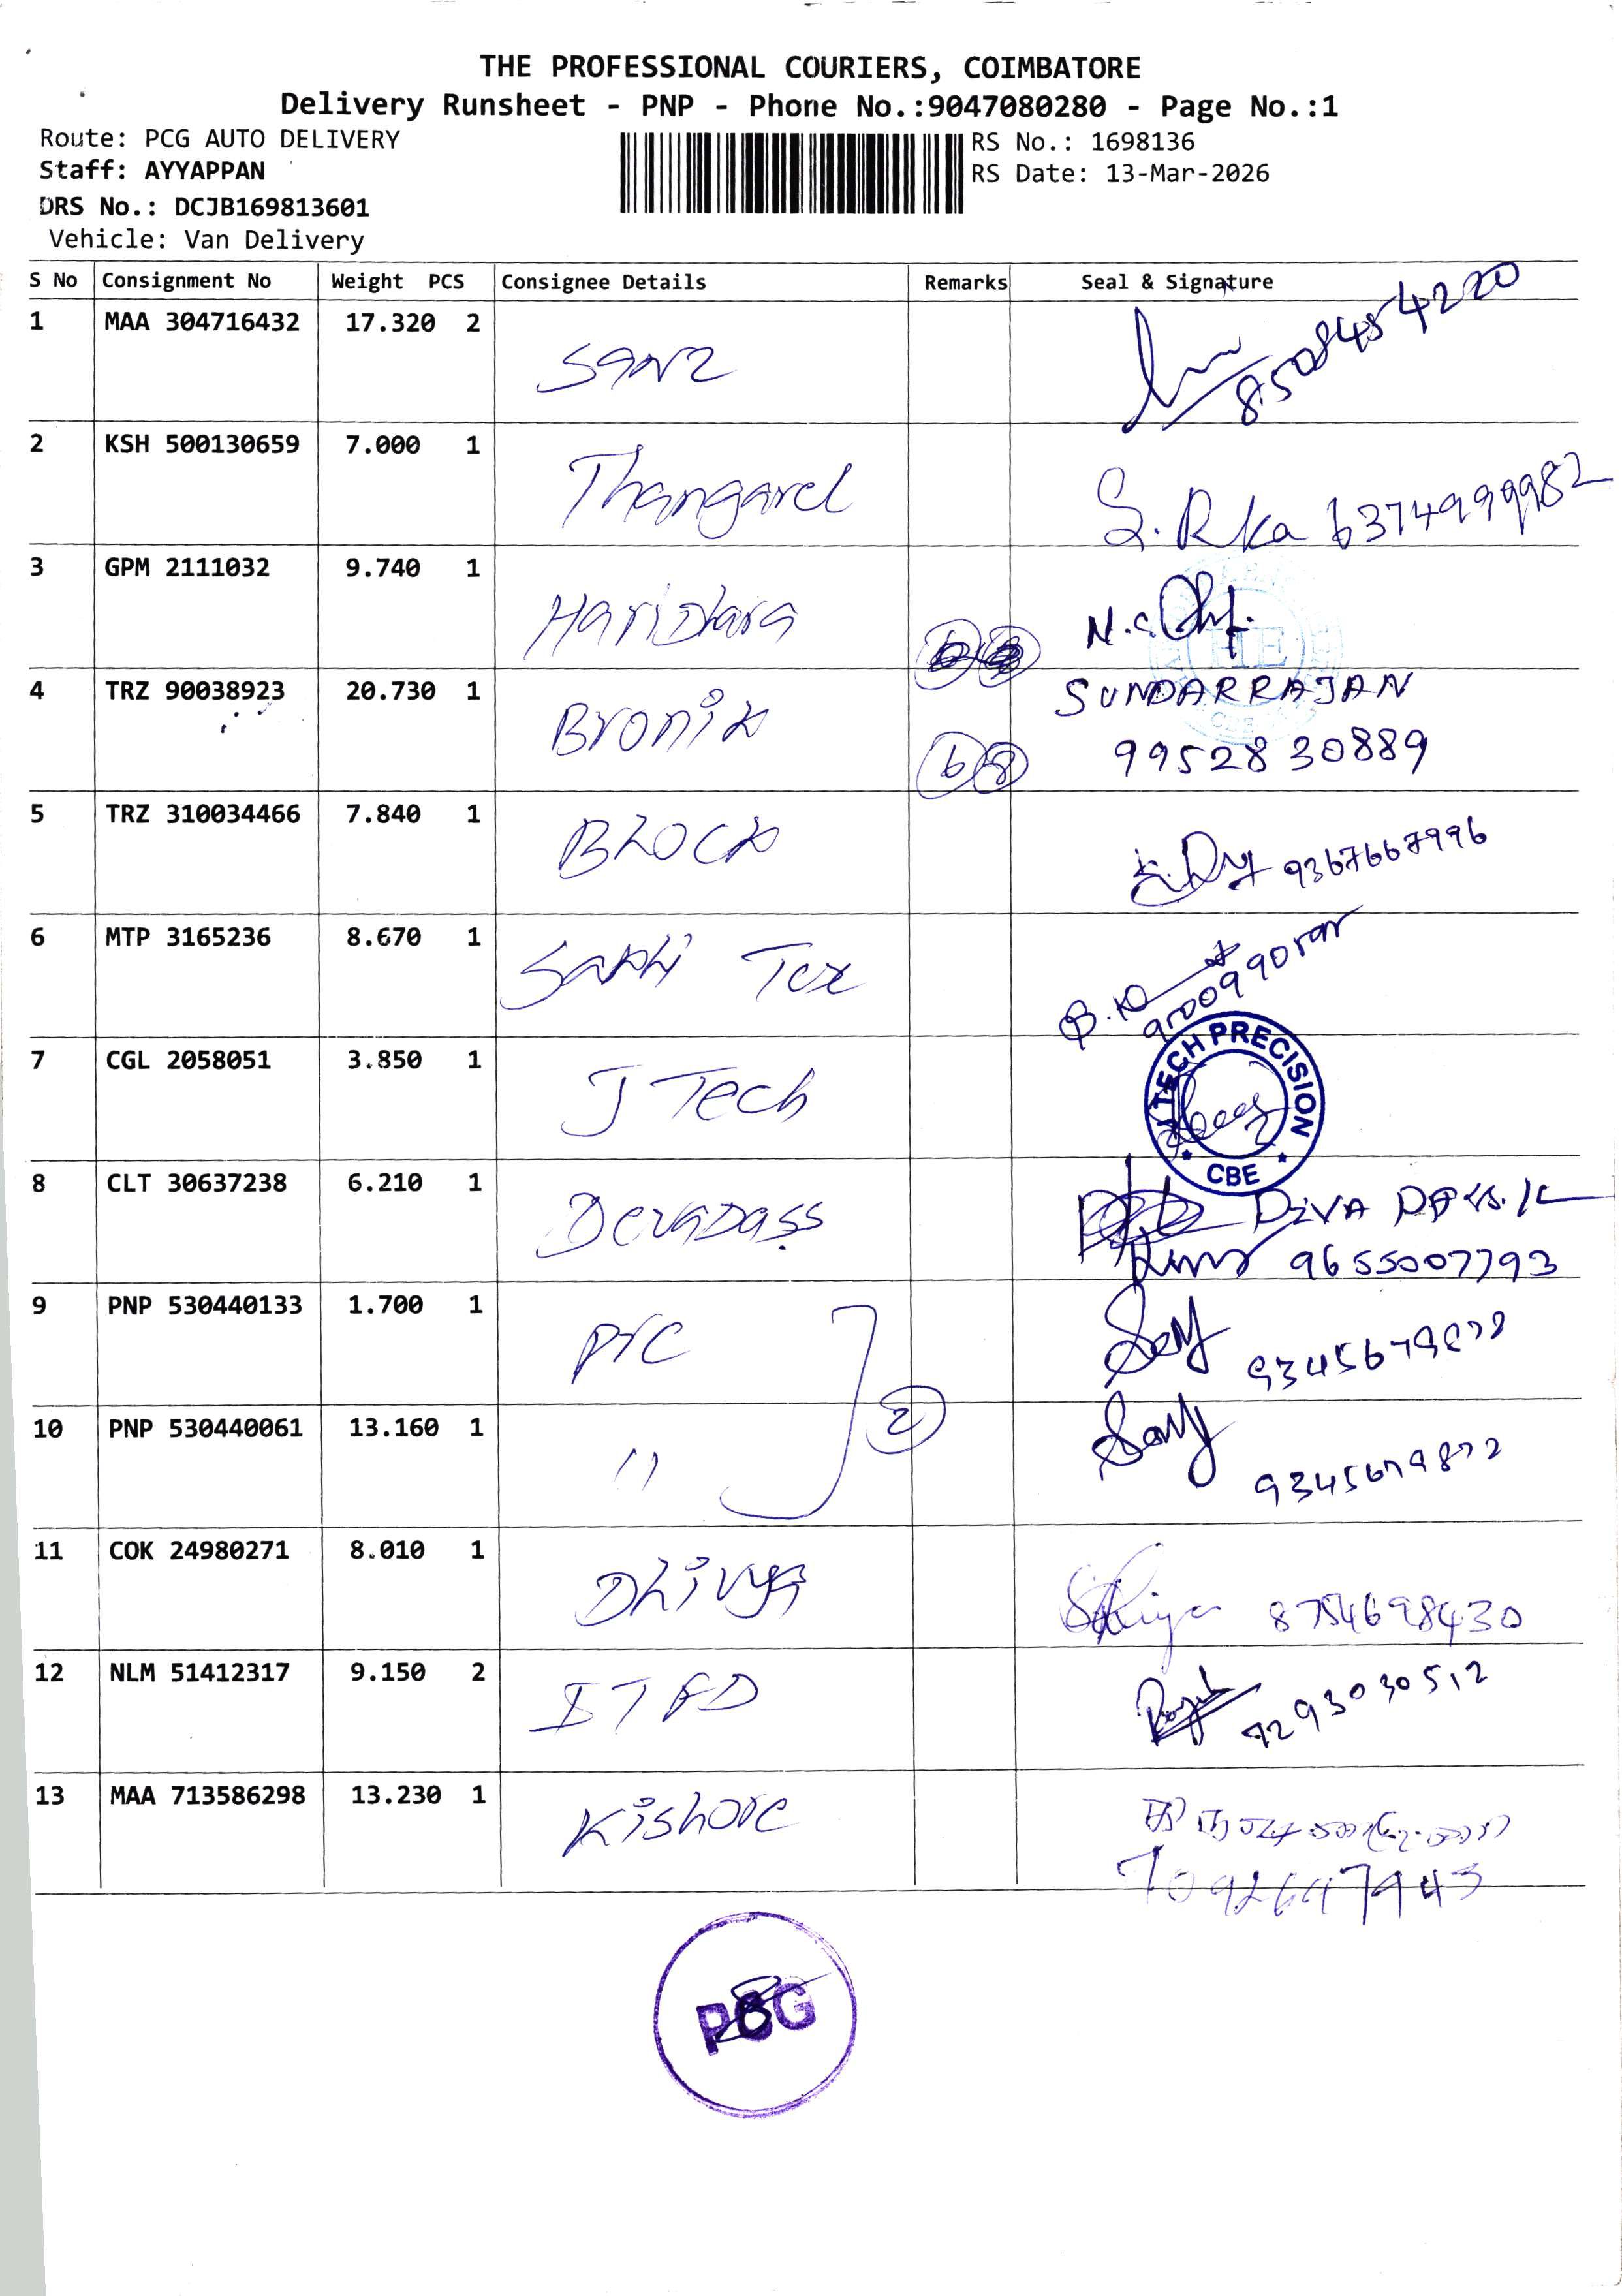 THE PROFESSIONAL COURIERS, COIMBATORE
Delivery Runsheet - PNP - Phone No.:9047080280 - Page No.:1
Route: PCG AUTO DELIVERY
Staff: AYYAPPAN
DRS No.: DCJB169813601
Vehicle: Van Delivery
RS No.: 1698136
RS Date: 13-Mar-2026
S No Consignment No Weight PCS Consignee Details Remarks Seal & Signature
1 MAA 304716432 17.320 2
8508454220
2 KSH 500130659 7.000 1 Thangavel
6374999982
3 GPM 2111032 9.740 1
4 TRZ 90038923 20.730 1 Bronik SUNDARRAJAN
9952830889
5 TRZ 310034466 7.840 1 Block 9367667996
6 MTP 3165236 8.670 1 Sakthi Tex
7 CGL 2058051 3.850 1 J Tech JTECH PRECISION CBE
8 CLT 30637238 6.210 1 Devadass
9655007793
9 PNP 530440133 1.700 1 PTC
2
10 PNP 530440061 13.160 1 11
9345679872
11 COK 24980271 8.010 1 Dhivya 8754698430
12 NLM 51412317 9.150 2 9293030512
13 MAA 713586298 13.230 1 Kishore
7092647943
PCG